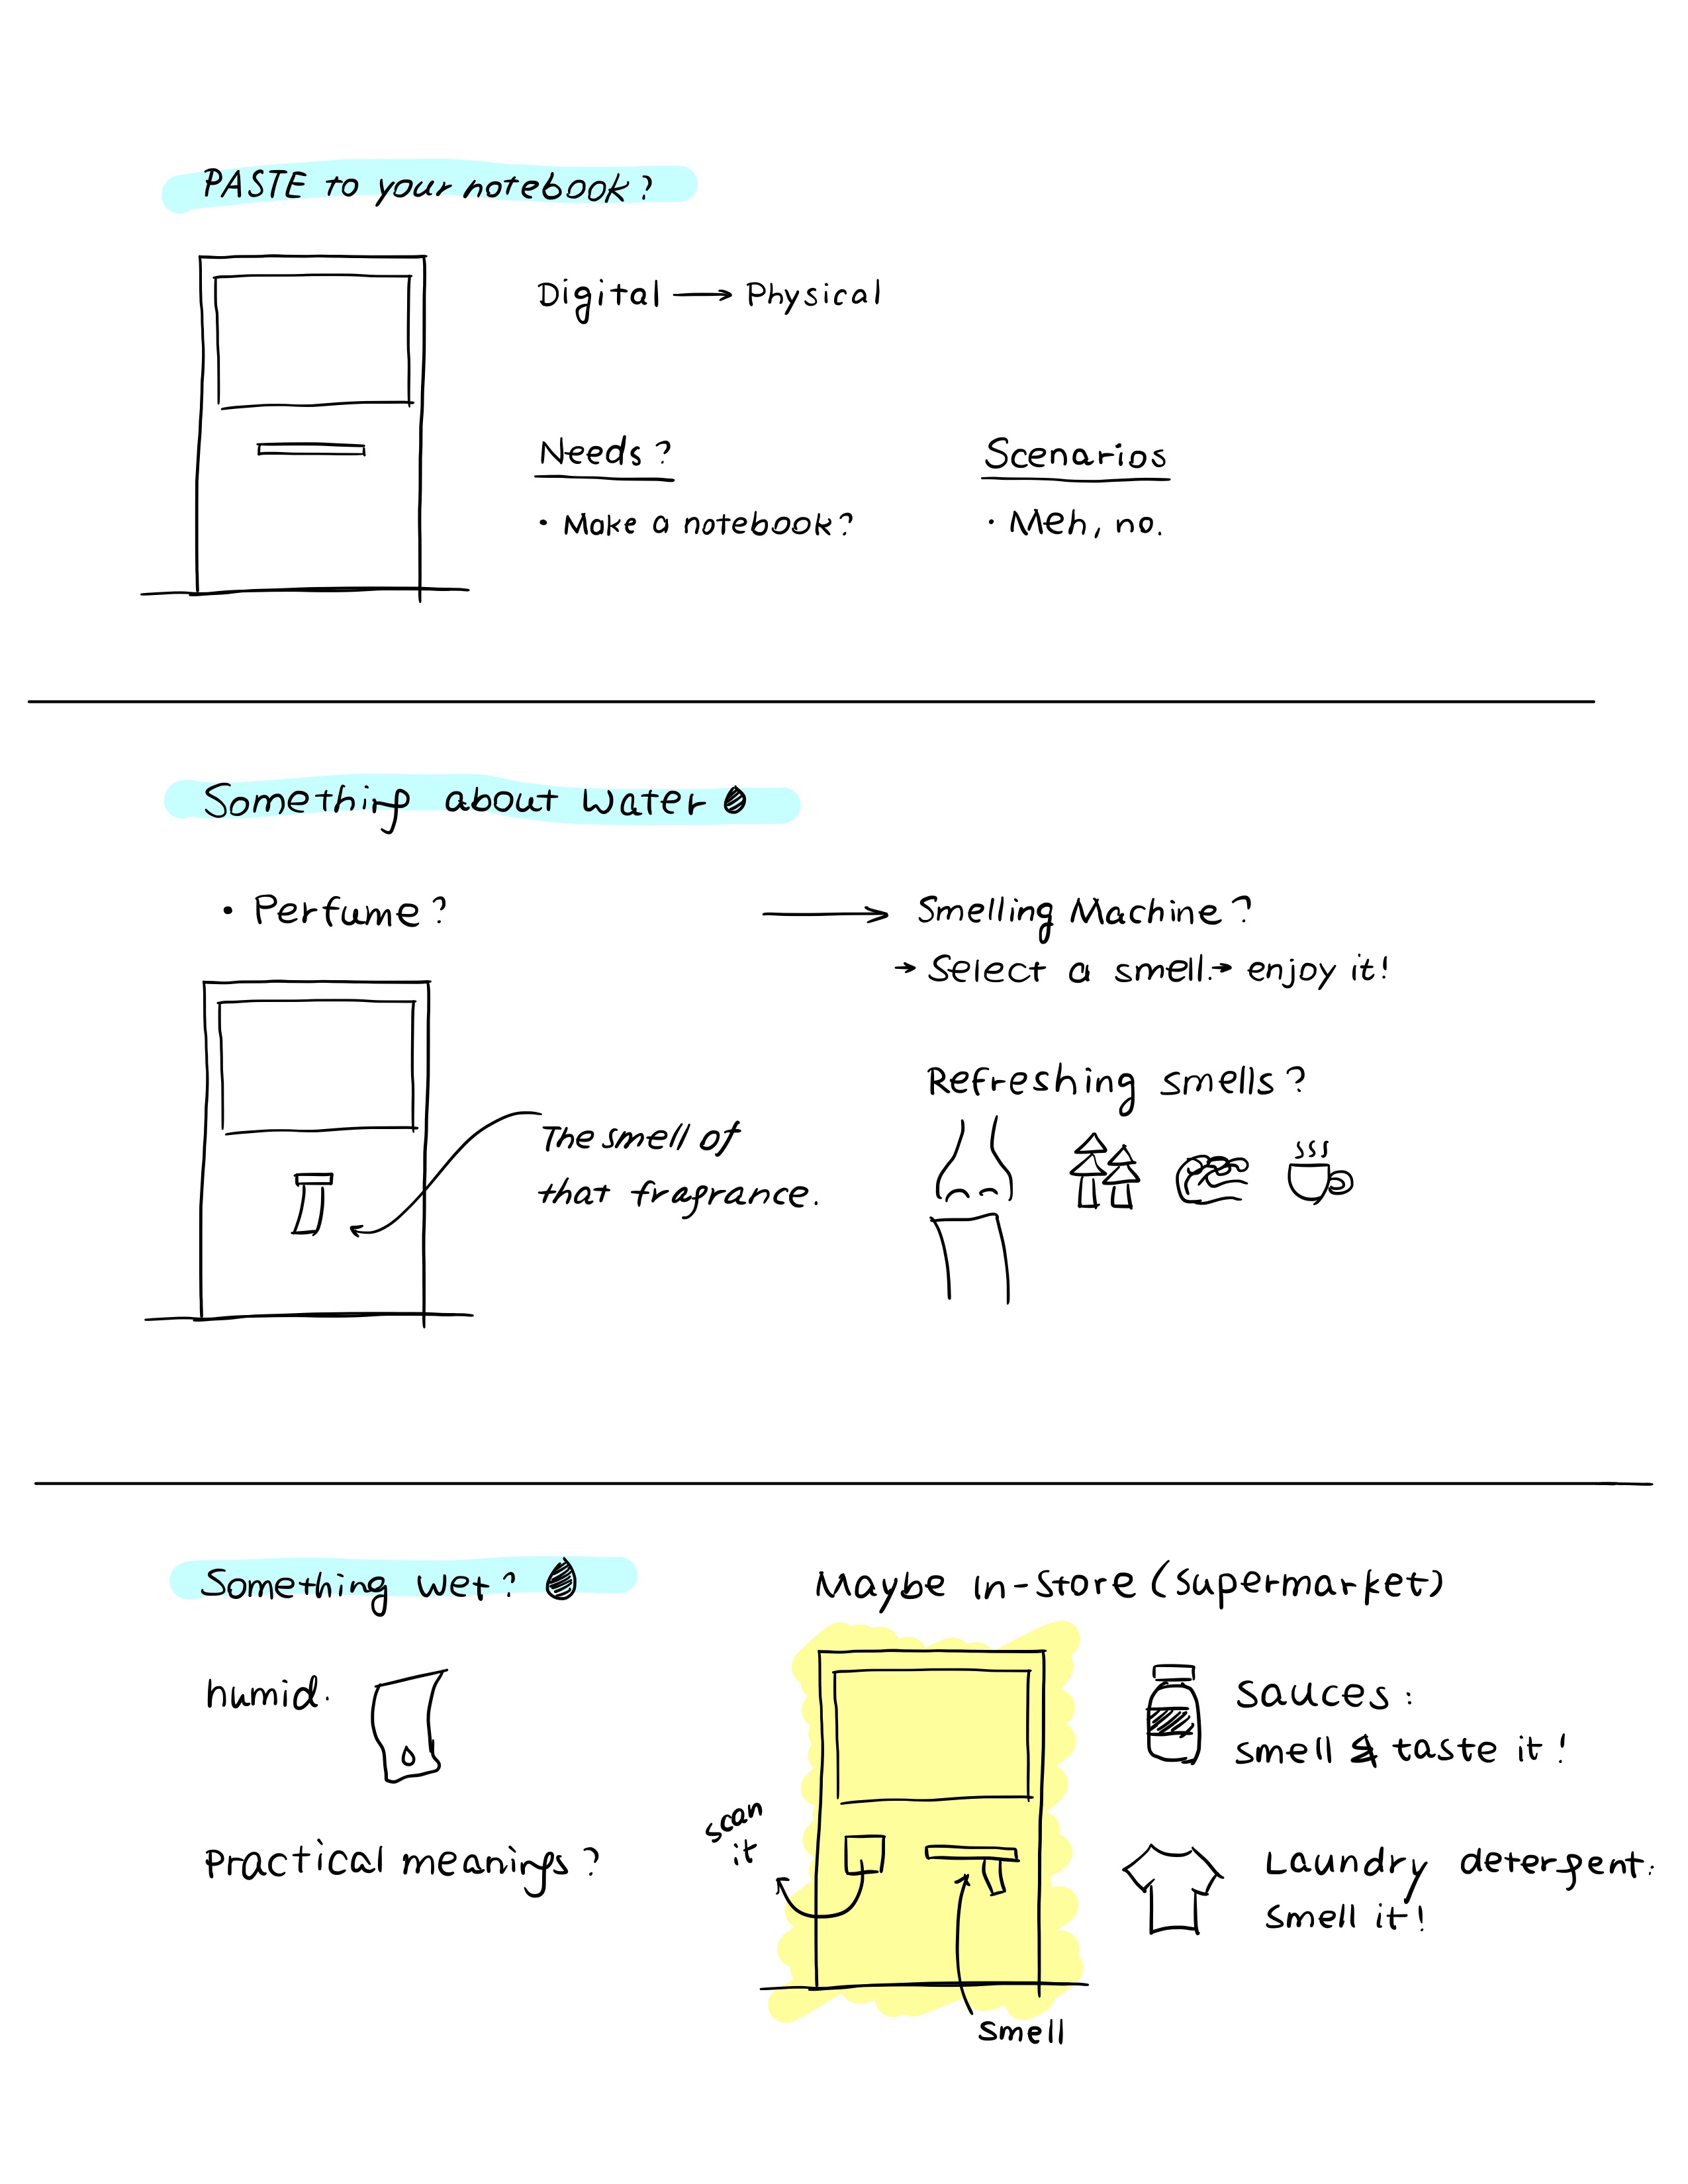 PASTE to your notebook?
Digital → Physical
Needs?
• Make a notebook?
Scenarios
• Meh, no.
Something about water
• Perfume?
→ Smelling Machine?
→ Select a smell. → enjoy it!
The smell of
that fragrance.
Refreshing smells?
Something wet?
humid.
Practical meanings?
Maybe in-store (supermarket)
scan
it
smell
Sauces:
smell & taste it!
Laundry detergent:
Smell it!